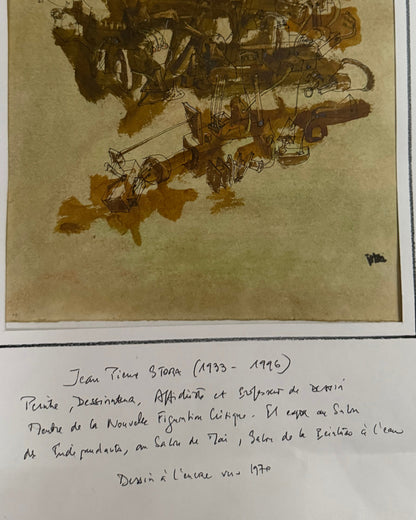 Jean Pierre STORA (1933 - 1996)
Peintre, Dessinateur, Affichiste et Professeur de dessin
Membre de la Nouvelle Figuration Critique. Il expose au Salon
des Indépendants, au Salon de Mai, Salon de la Peinture à l'eau
Dessin à l'encre vers 1970